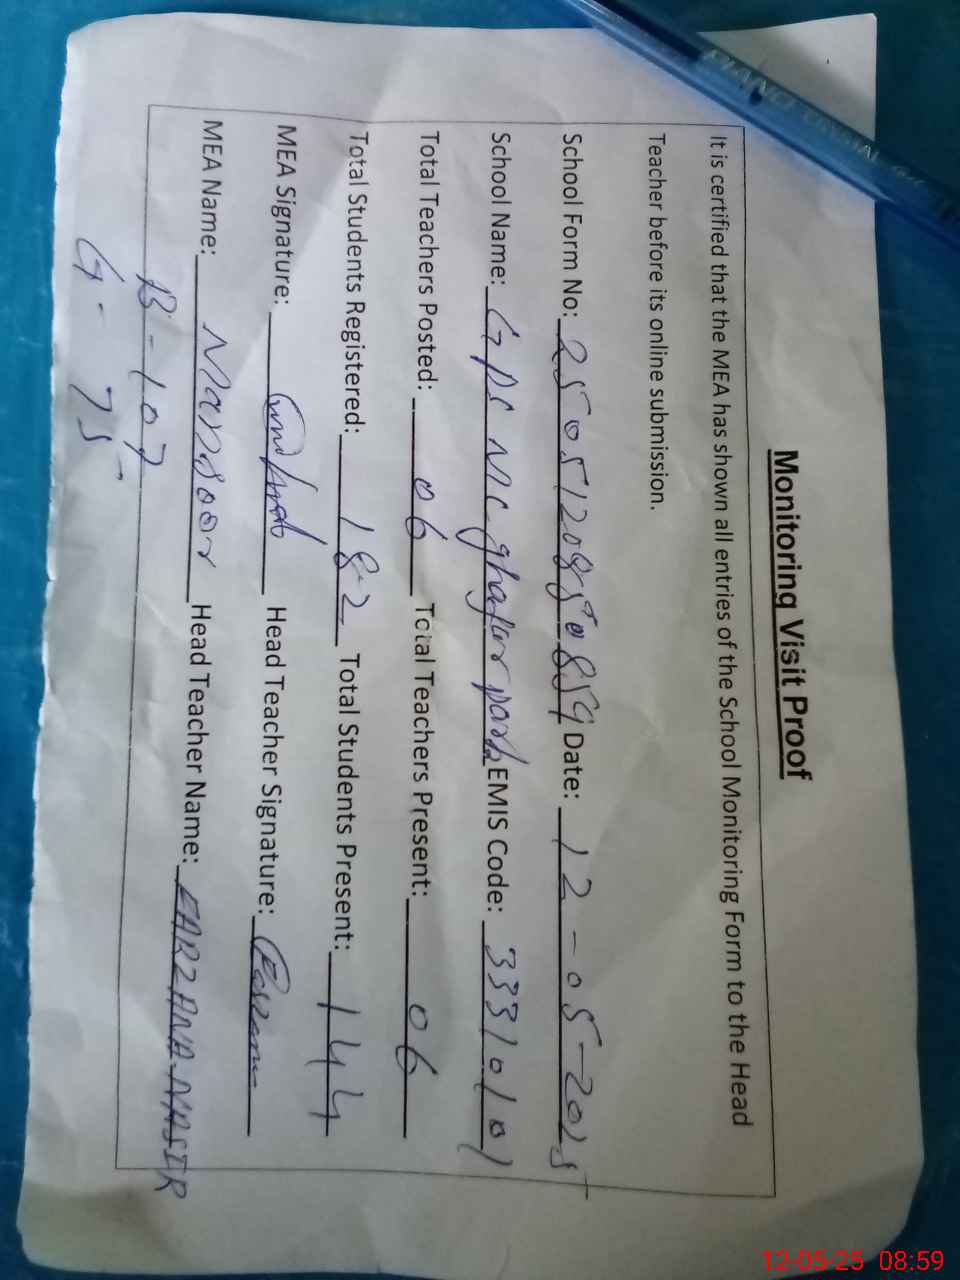 Monitoring Visit Proof
It is certified that the MEA has shown all entries of the School Monitoring Form to the Head
Teacher before its online submission.
School Form No: Date: 12-05-2025
School Name: GPS MC ghafur park EMIS Code: 33310101
Total Teachers Posted: 06 Total Teachers Present: 06
Total Students Registered: 182 Total Students Present: 144
MEA Signature: Head Teacher Signature:
MEA Name: Mansoor Head Teacher Name: FARZANA NASIR
B-107
G-75
PIANO
12-05-25 08:59